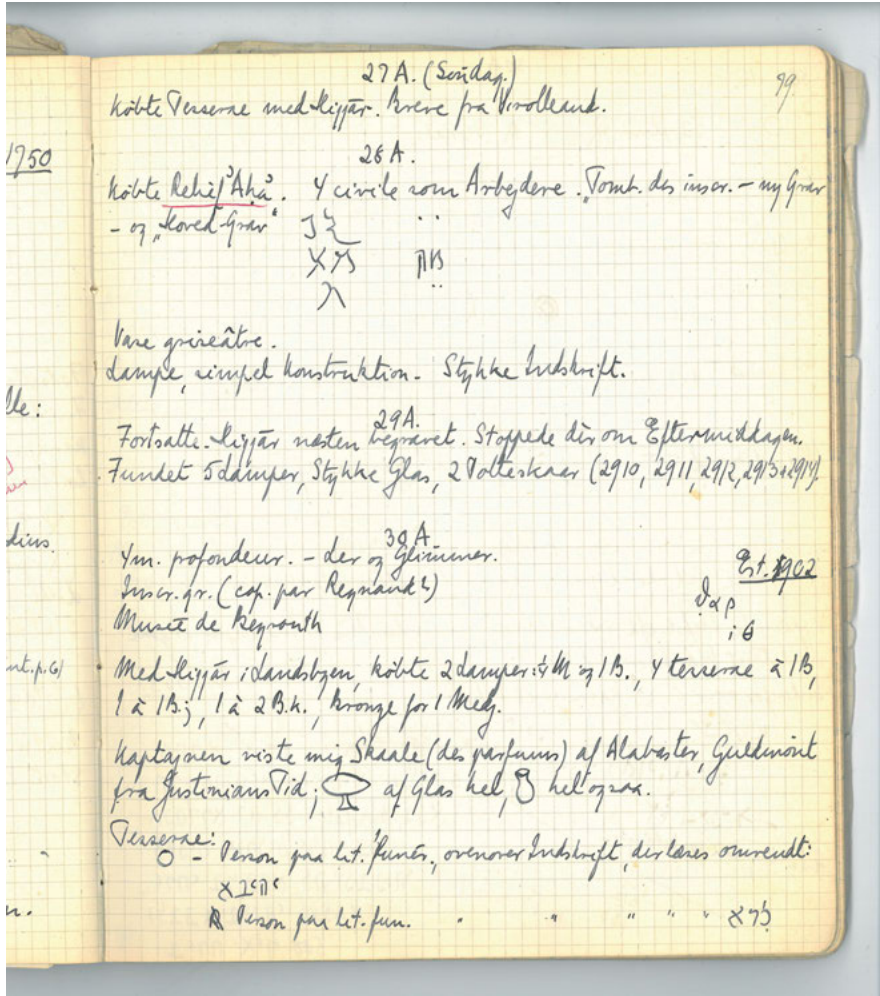 99
27 A. (Söndag.)
Købte Tesserae med Hijjâr. Breve fra Virolleaud.
1750
28 A.
Købte Relief ʾAḥāʾ. 4 civile som Arbejdere. "Tomb. des inscr. – ny Grav
– og "Hoved-Grav"
Vase grisâtre.
Lampe, simpel Konstruktion. Stykke Indskrift.
lle:
29 A.
Fortsatte. Hijjâr næsten begravet. Stoppede dèr om Eftermiddagen.
Fundet 5 Lamper, Stykke Glas, 2 Potteskaar (2910, 2911, 2912, 2913+2914).
30 A.
dius.
4 m. profondeur. – Ler og Glimmer.
Est. 1902
Inscr. gr. (cop. par Regnault)
ϑ α ρ
Musée de Beyrouth
i θ
nt. p. 6)
Med Hijjâr i Landsbyen, købte 2 Lamper: M og 1 B., 4 tesserae à 1 B,
1 à 1 B.; 1 à 2 B.k., Bronze for 1 Medj.
Kaptajnen viste mig Skaale (des parfums) af Alabaster, Guldmønt
fra Justinians Tid; af Glas hel, hel ogsaa.
Tesserae:
O – Person paa lit. funér., ovenover Indskrift, der læses omvendt:
n.
R Person paa lit. fun. " " " " "